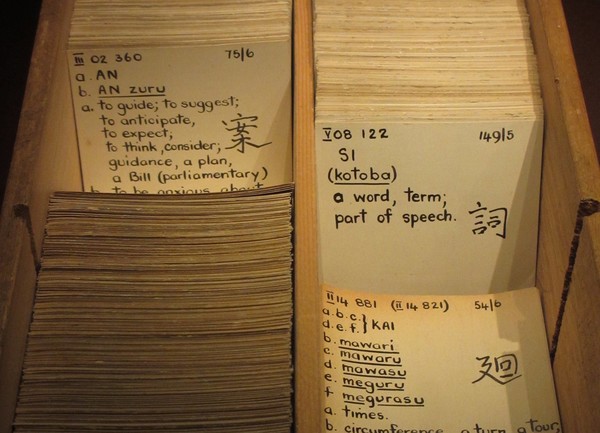 III 02 360 75/6
a. AN
b. AN zuru
a. to guide; to suggest;
to anticipate,
to expect;
to think, consider;
guidance, a plan,
a Bill (parliamentary)
b. to be anxious about
案
V 08 122 149/5
SI
(kotoba)
a word, term;
part of speech.
詞
II 14 881 (II 14 821) 54/6
a.b.c.}
d.e.f.} KAI
b. mawari
c. mawaru
d. mawasu
e. meguru
f. megurasu
a. times.
b. circumference, a turn, a tour,
廻